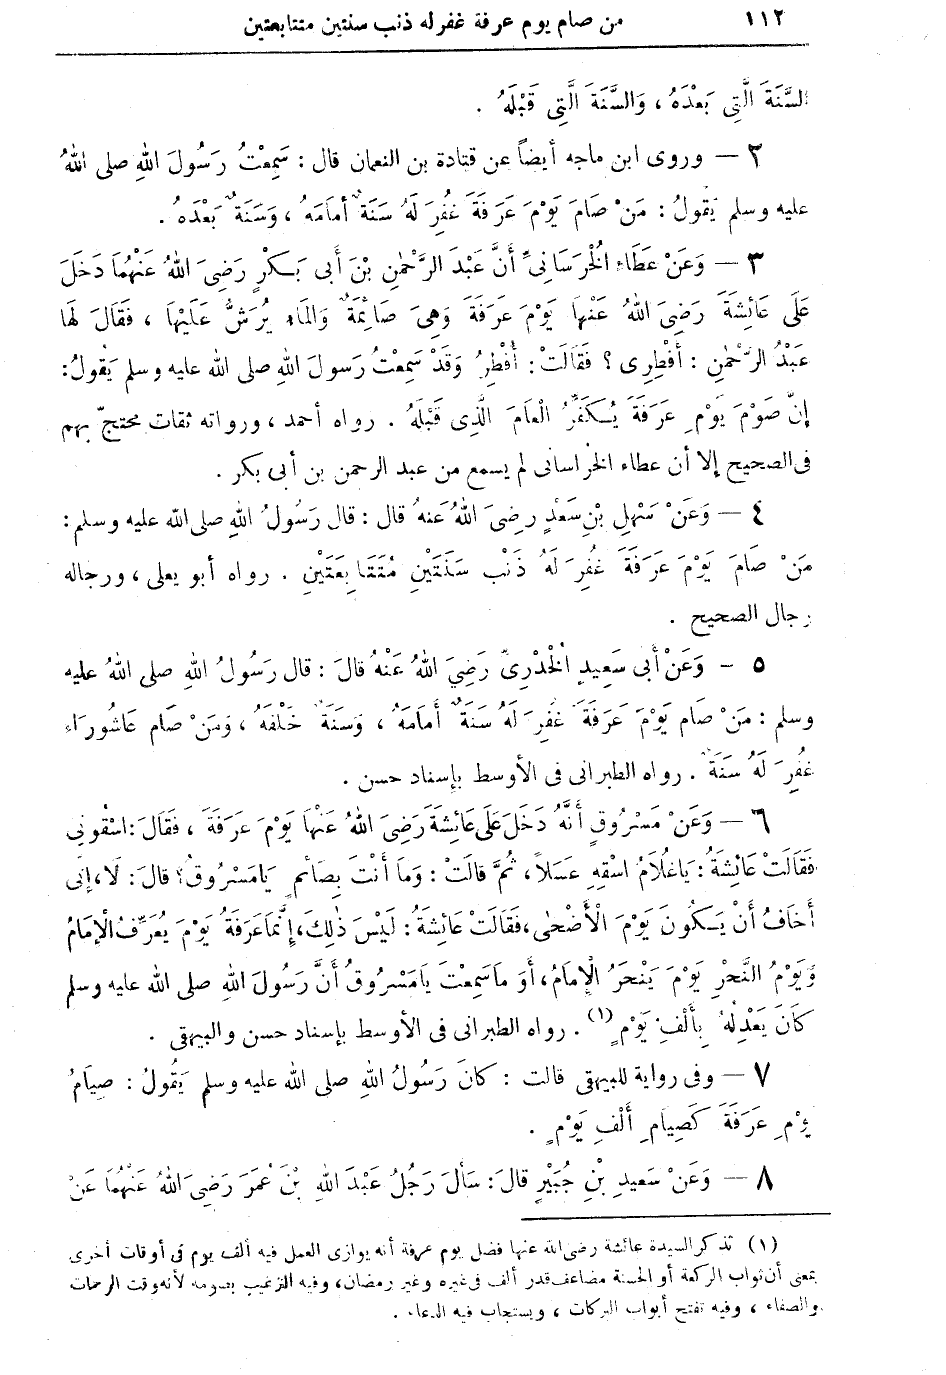 ١١٢ من صام يوم عرفة غفر له ذنب سنتين متتابعتين
السَّنَةَ الَّتِى بَعْدَهُ ، وَالسَّنَةَ الَّتِى قَبْلَهُ .
٢ — وروى ابن ماجه أيضاً عن قتادة بن النعمان قال : سَمِعْتُ رَسُولَ اللهِ صلى اللهُ
عليه وسلم يَقُولُ : مَنْ صَامَ يَوْمَ عَرَفَةَ غُفِرَ لَهُ سَنَةٌ أمَامَهُ ، وَسَنَةٌ بَعْدَهُ .
٣ — وَعَنْ عَطَاءِ الْخُرَسَانِىِّ أَنَّ عَبْدَ الرَّحْمٰنِ بْنَ أَبى بَكْرٍ رَضِىَ اللهُ عَنْهُمَا دَخَلَ
عَلَى عَائِشَةَ رَضِىَ اللهُ عَنْهَا يَوْمَ عَرَفَةَ وَهِىَ صَائِمَةٌ وَالمَاء يُرَشُّ عَلَيْهَا ، فَقَالَ لَهَا
عَبْدُ الرَّحْمٰنِ : أَفْطِرِى ؟ فَقَالَتْ : أُفْطِرُ وَقَدْ سَمِعْتُ رَسولَ اللهِ صلى الله عليه وسلم يَقُولُ :
إنَّ صَوْمَ يَوْمِ عَرَفَةَ يُكَفِّرُ الْعَامَ الَّذِى قَبْلَهُ . رواه أحمد ، ورواته ثقات محتجّ بهم
فى الصحيح إلا أن عطاء الخراسانى لم يسمع من عبد الرحمن بن أبى بكر .
٤ — وَعَنْ سَهْلِ بْنِ سَعْدٍ رضِىَ اللهُ عَنهُ قال : قال رَسُولُ اللهِ صلى الله عليه وسلم :
مَنْ صَامَ يَوْمَ عَرَفَةَ غُفِرَ لَهُ ذَنْب سَنَتَيْنِ مُتَتَابِعَتَيْنِ . رواه أبو يعلى ، ورجاله
رجال الصحيح .
٥ - وَعَنْ أَبى سَعِيدٍ الْخُدْرِىِّ رَضِيَ اللهُ عَنْهُ قالَ : قال رَسُولُ اللهِ صلى اللهُ عليه
وسلم : مَنْ صَام يَوْمَ عَرَفَةَ غُفِرَ لَهُ سَنَةٌ أَمَامَهُ ، وَسَنَةٌ خَلْفَهُ ، وَمَنْ صَام عَاشُورَاءِ
غُفِرَ لَهُ سَنَةٌ . رواه الطبرانى فى الأوسط بإسناد حسن .
٦ — وَعَنْ مَسْرُوقٍ أَنَّهُ دَخَلَ عَلَى عَائِشَةَ رَضِىَ اللهُ عَنْهَا يَوْمَ عَرَفَةَ ، فَقَالَ : اسْقُونِى
فَقَالَتْ عَائِشَةُ : يَاغُلَامُ اسْقِهِ عَسَلاً ، ثُمَّ قالَتْ : وَمَا أَنْتَ بِصَائمٍ يَامَسْرُوقُ؟ قالَ : لَا ، إِنِّى
أَخَافُ أَنْ يَكُونَ يَوْمَ الْأَضْحٰى ، فَقَالَتْ عَائِشَةُ : لَيْسَ ذٰلِكَ ، إنَّمَا عَرَفَةُ يَوْمَ يُعَرِّفُ الْإِمَامُ
وَيَوْمُ النَّحْرِ يَوْمَ يَنْحَرُ الْإِمَامُ ، أَوَ مَا سَمِعْتَ يَامَسْرُوقُ أَنَّ رَسُولَ اللهِ صلى الله عليه وسلم
كَانَ يَعْدِلُهُ بِأَلْفِ يَوْمٍ (١) . رواه الطبرانى فى الأوسط بإسناد حسن والبيهقى .
٧ — وفى رواية للبيهقى قالت : كانَ رَسُولُ اللهِ صلى الله عليه وسلم يَقُولُ : صِيَامُ
يَوْمِ عَرَفَةَ كَصِيَامِ أَلْفِ يَوْمٍ .
٨ — وَعَنْ سَعِيدِ بْنِ جُبَيْرٍ قالَ : سَأَلَ رَجُلٌ عَبْدَ اللهِ بْنَ عُمَرَ رَضِىَ اللهُ عَنْهُمَا عَنْ
(١) تذكر السيدة عائشة رضى الله عنها فضل يوم عرفة أنه يوازى العمل فيه ألف يوم فى أوقات أخرى
بمعنى أن ثواب الركعة أو الحسنة مضاعف قدر ألف فى غيره وغير رمضان، وفيه الترغيب بصومه لأنه وقت الرحمات
والصفاء ، وفيه تفتح أبواب البركات ، ويستجاب فيه الدعاء .